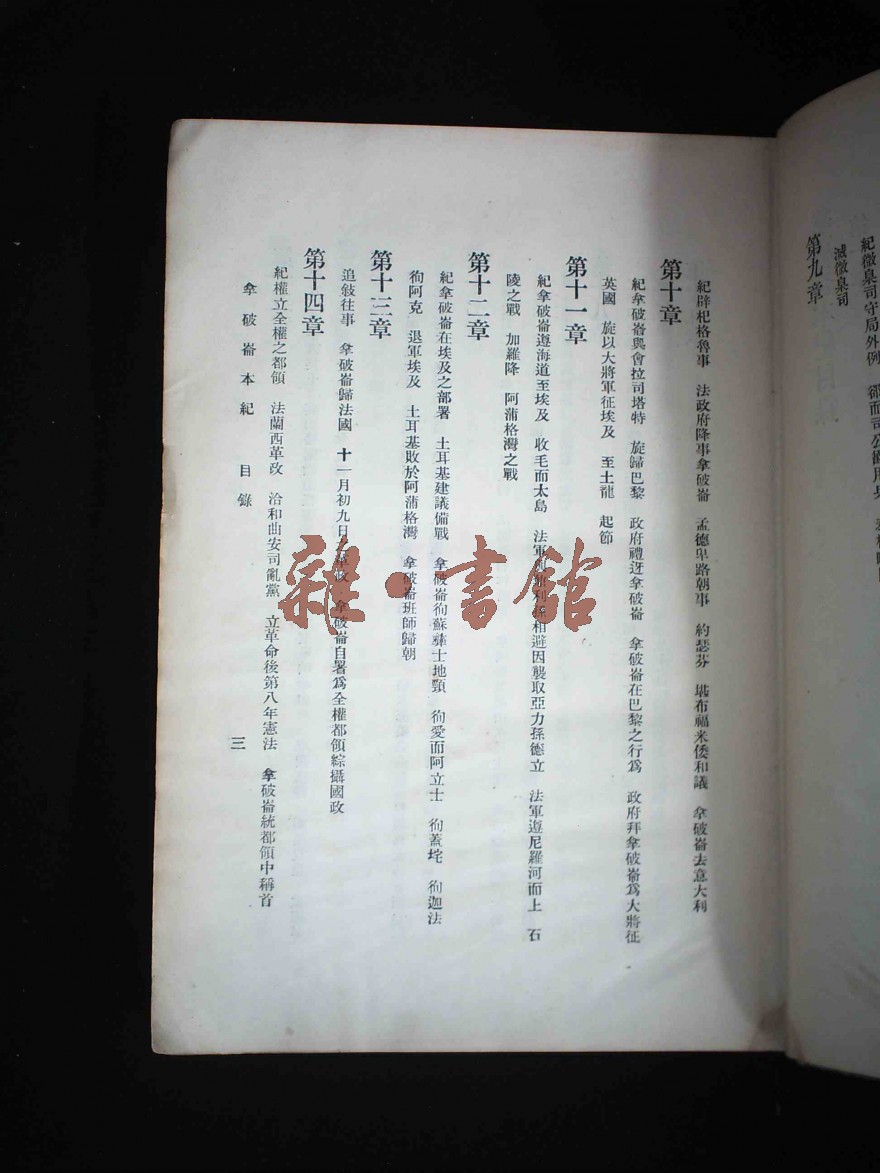 紀微臬司守局外例
滅微臬司
第九章
紀辟杞格魯事 法政府降事拿破崙 孟德卑路朝事 約瑟芬 堪布福米倭和議 拿破崙去意大利
第十章
紀拿破崙與會拉司塔特 旋歸巴黎 政府禮迓拿破崙 拿破崙在巴黎之行為 政府拜拿破崙為大將征
英國 旋以大將軍征埃及 至土龍 起節
第十一章
紀拿破崙遵海道至埃及 收毛而太島 法軍 利 相避因襲取亞力孫德立 法軍遵尼羅河而上 石
陵之戰 加羅隆 阿蒲格灣之戰
第十二章
紀拿破崙在埃及之部署 土耳基建議備戰 拿破崙徇蘇彝士地頸 徇愛而阿立士 徇蓋垞 徇迦法
徇阿克 退軍埃及 土耳基敗於阿蒲格灣 拿破崙班師歸朝
第十三章
追敍往事 拿破崙歸法國 十一月初九日之革政 拿破崙自署為全權都領綜攝國政
第十四章
紀權立全權之都領 法蘭西革政 洽和曲安司亂黨 立革命後第八年憲法 拿破崙統都領中稱首
拿破崙本紀 目錄
三
雜·書館